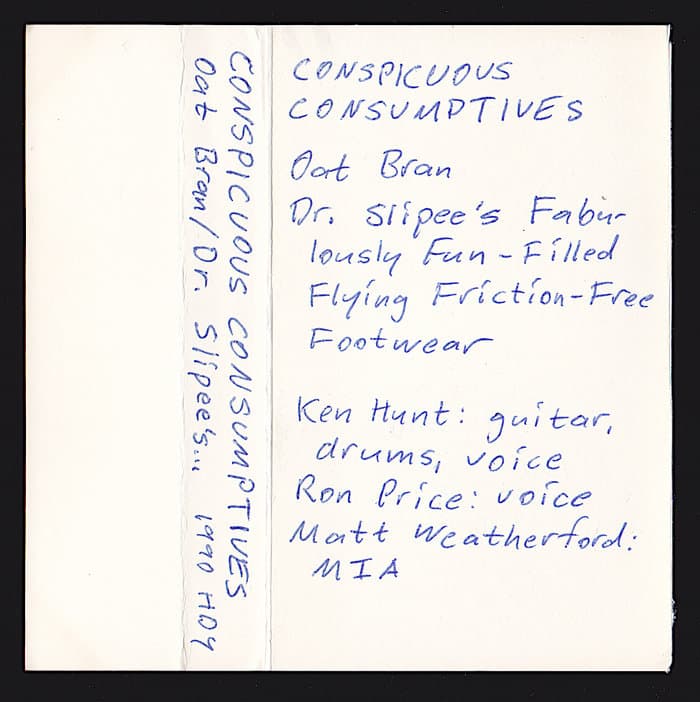 CONSPICUOUS CONSUMPTIVES
Oat Bran/Dr. Slipee's... 1990 HOY
CONSPICUOUS
CONSUMPTIVES
Oat Bran
Dr. Slipee's Fabu-
lously Fun-Filled
Flying Friction-Free
Footwear
Ken Hunt: guitar,
drums, voice
Ron Price: voice
Matt Weatherford:
MIA